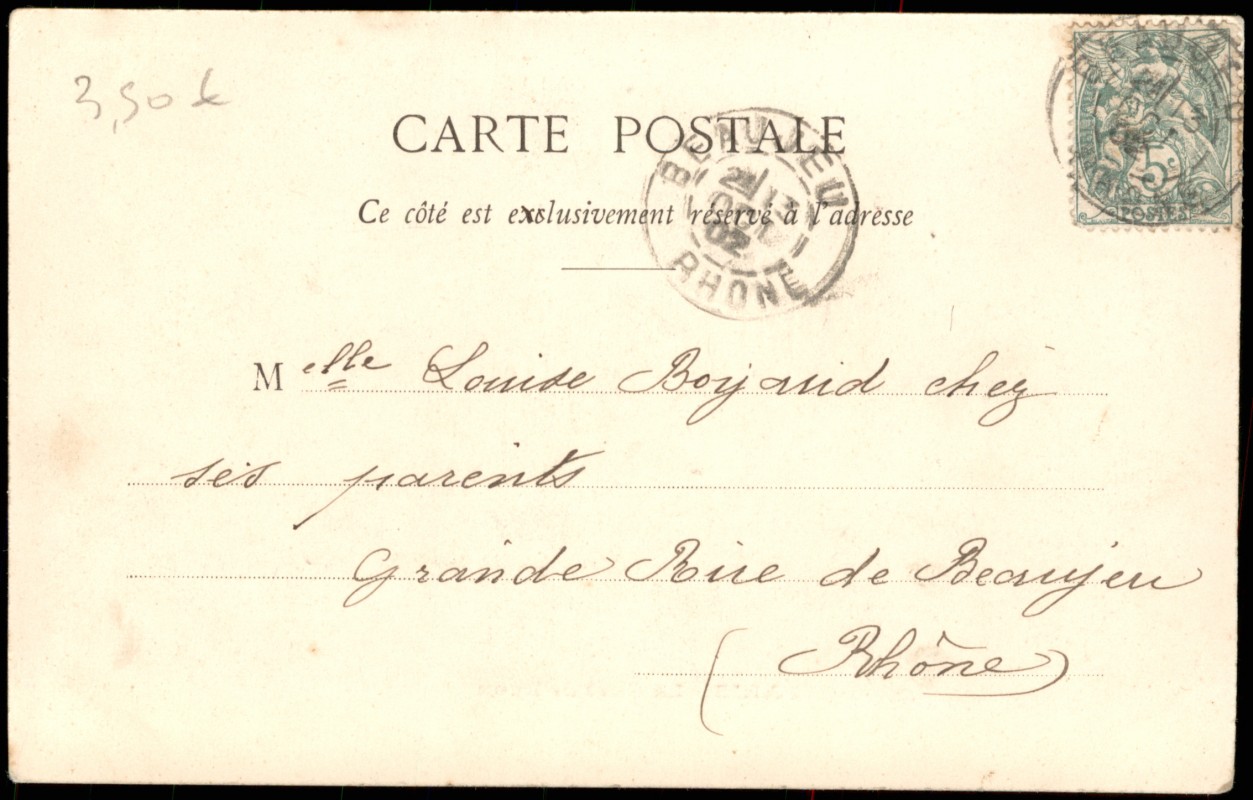 3,50 €
CARTE POSTALE
Ce côté est exclusivement réservé à l'adresse
BEAUJEU
21
OCT
02
RHONE
5
POSTES
Melle Louise Boyaud chez
ses parents
Grande Rue de Beaujeu
(Rhône)